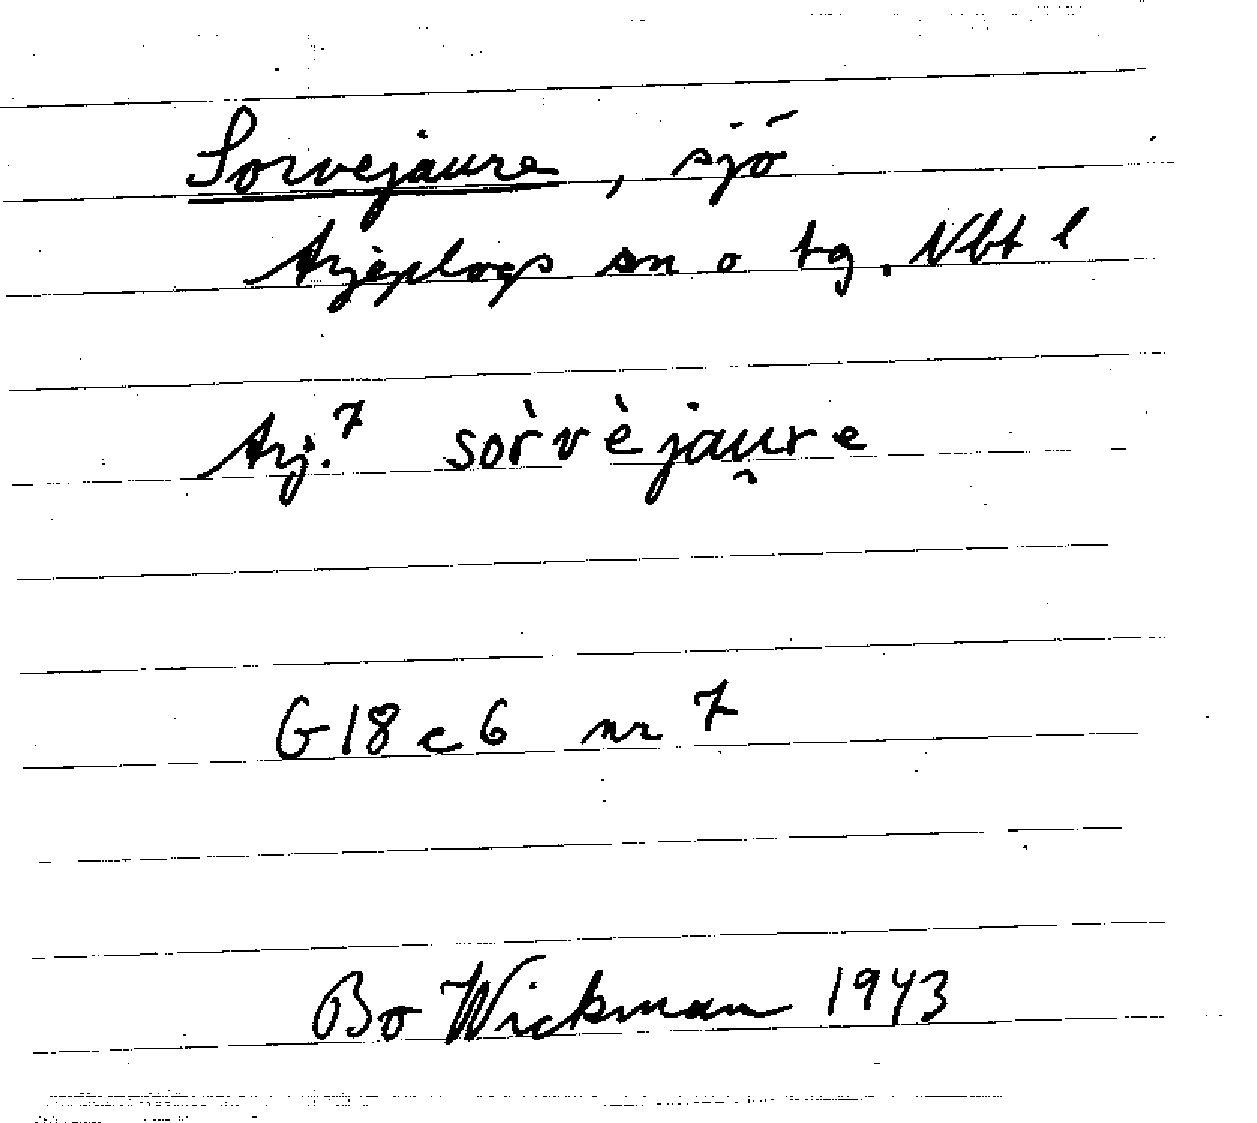 Sorvejaure, sjö
Arjeplogs sn o tg. Nbt l
Arj.⁷ sòrvèjau̯re
G18c6 nr 7
Bo Wickman 1943